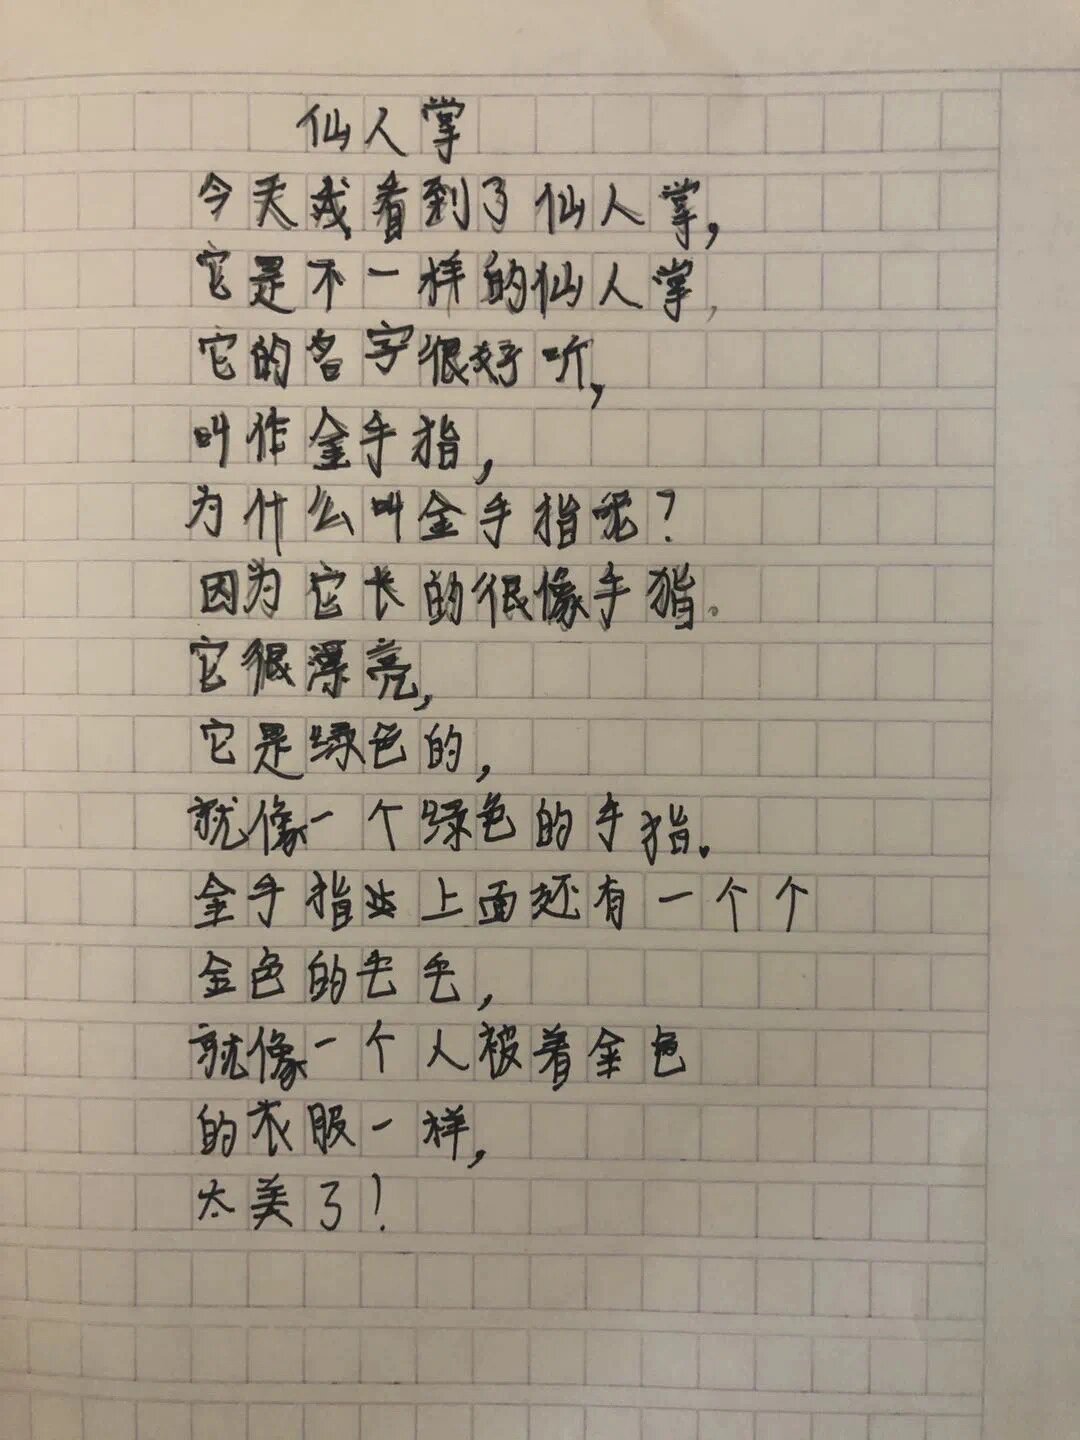 仙人掌
今天我看到了仙人掌,
它是不一样的仙人掌,
它的名字很好听,
叫作金手指,
为什么叫金手指呢?
因为它长的很像手指。
它很漂亮,
它是绿色的,
就像一个绿色的手指。
金手指上面还有一个个
金色的毛毛,
就像一个人被着金色
的衣服一样,
太美了!